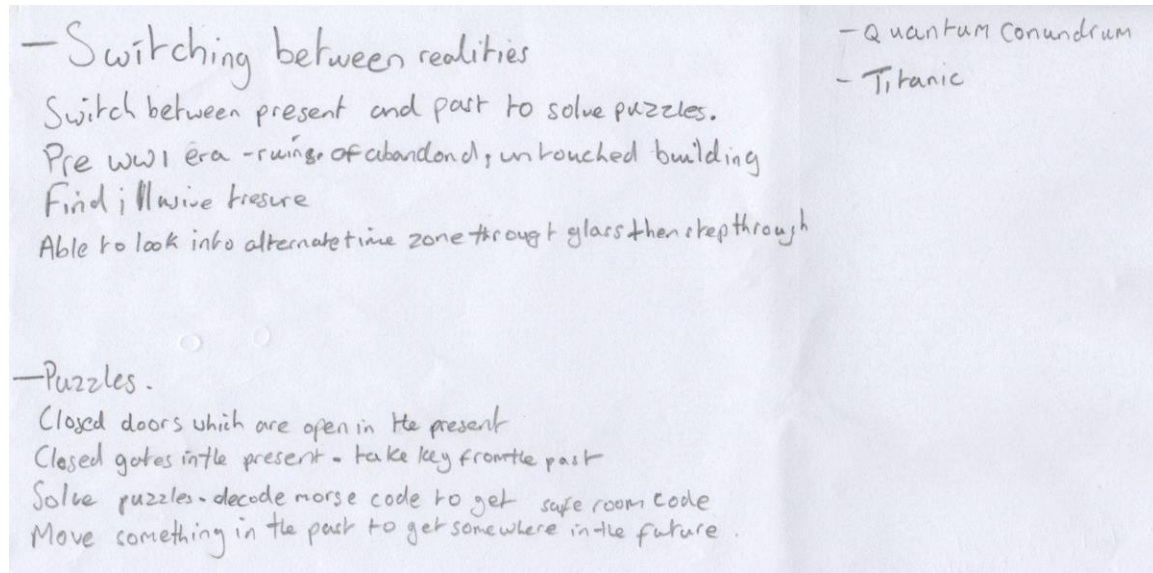 — Switching between realities
Switch between present and past to solve puzzles.
Pre WW1 era - ruins of abandond, untouched building
Find illusive tresure
Able to look into alternate time zone through glass then step through
— Puzzles.
Closed doors which are open in the present
Closed gates in the present - take key from the past
Solve puzzles - decode morse code to get safe room code
Move something in the past to get somewhere in the future.
- Quantum Conundrum
- Titanic